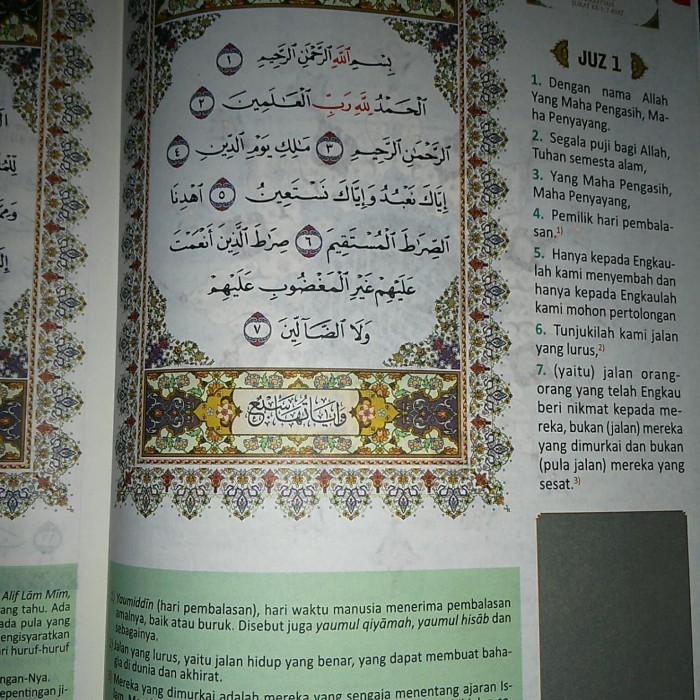 بِسْمِ اللَّهِ الرَّحْمَٰنِ الرَّحِيمِ ١
الْحَمْدُ لِلَّهِ رَبِّ الْعَالَمِينَ ٢
الرَّحْمَٰنِ الرَّحِيمِ ٣ مَالِكِ يَوْمِ الدِّينِ ٤
إِيَّاكَ نَعْبُدُ وَإِيَّاكَ نَسْتَعِينُ ٥ اهْدِنَا
الصِّرَاطَ الْمُسْتَقِيمَ ٦ صِرَاطَ الَّذِينَ أَنْعَمْتَ
عَلَيْهِمْ غَيْرِ الْمَغْضُوبِ عَلَيْهِمْ
وَلَا الضَّالِّينَ ٧
وآياتها سبع
JUZ 1
1. Dengan nama Allah
Yang Maha Pengasih, Ma-
ha Penyayang.
2. Segala puji bagi Allah,
Tuhan semesta alam,
3. Yang Maha Pengasih,
Maha Penyayang,
4. Pemilik hari pembala-
san.1)
5. Hanya kepada Engkau-
lah kami menyembah dan
hanya kepada Engkaulah
kami mohon pertolongan
6. Tunjukilah kami jalan
yang lurus,2)
7. (yaitu) jalan orang-
orang yang telah Engkau
beri nikmat kepada me-
reka, bukan (jalan) mereka
yang dimurkai dan bukan
(pula jalan) mereka yang
sesat.3)
Yaumiddīn (hari pembalasan), hari waktu manusia menerima pembalasan
amalnya, baik atau buruk. Disebut juga yaumul qiyāmah, yaumul hisāb dan
sebagainya.
Jalan yang lurus, yaitu jalan hidup yang benar, yang dapat membuat baha-
gia di dunia dan akhirat.
Mereka yang dimurkai adalah mereka yang sengaja menentang ajaran Is-
Alif Lām Mīm,
ang tahu. Ada
ada pula yang
engisyaratkan
ri huruf-huruf
ngan-Nya.
epentingan ji-